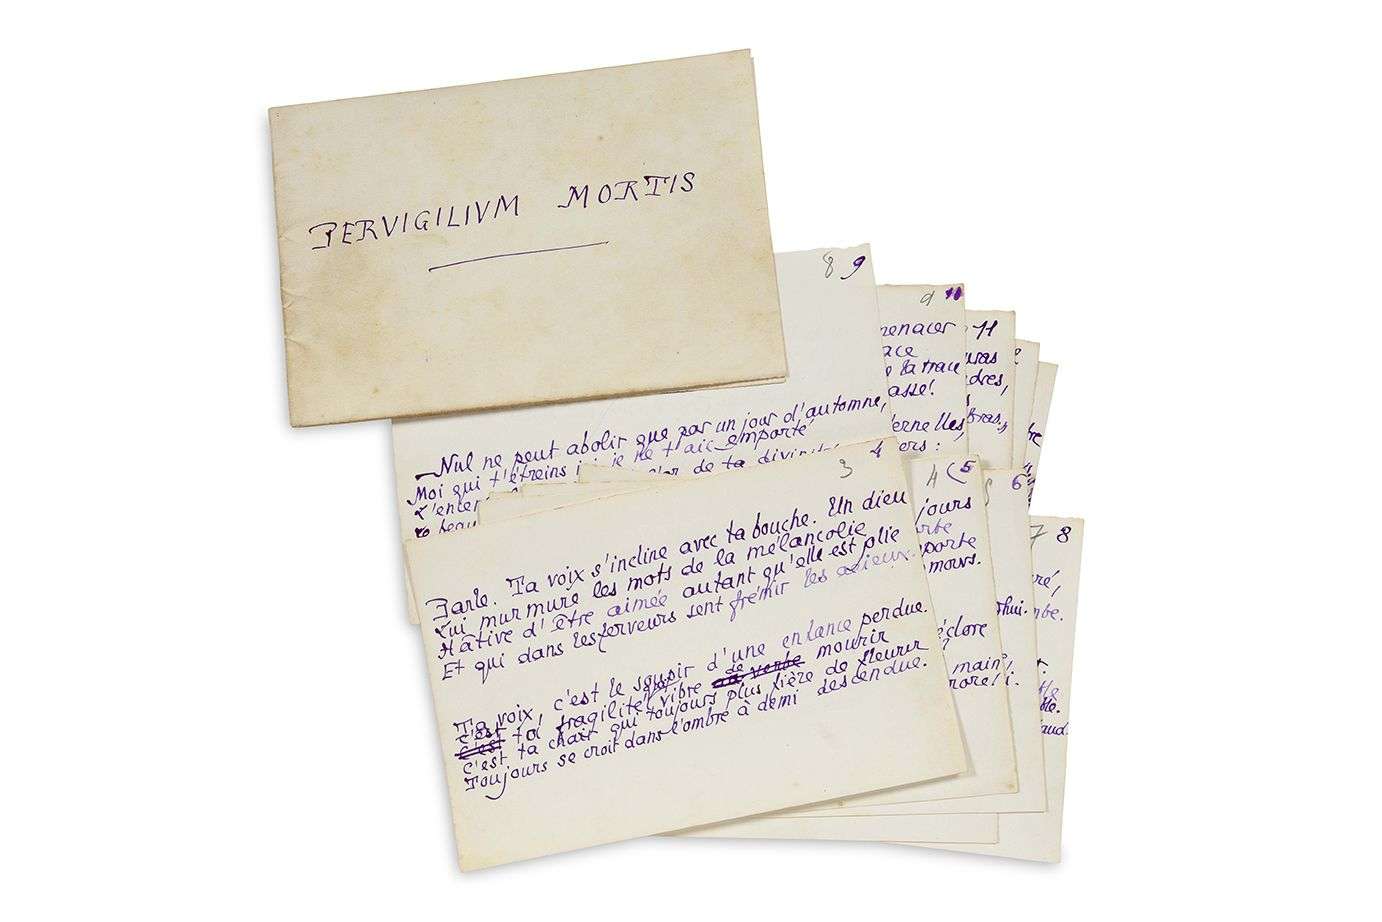 PERVIGILIVM MORTIS
8 9
Nul ne peut abolir que par un jour d'automne,
Moi qui t'étreins ici je ne t'aie emporté
L'or de ta divinité
beau
9 10
menacer
ace
e la trace
asse!
ernelles,
ers :
11
uras
dres,
bras,
3 4
Parle. Ta voix s'incline avec ta bouche. Un dieu
Lui murmure les mots de la mélancolie
Hâtive d'être aimée autant qu'elle est jolie
Et qui dans les ferveurs sent frémir les adieux.
Ta voix, c'est le soupir d'une enfance perdue.
C'est toi fragilité vibre de mourir
C'est ta chair qui toujours plus fière de fleurir
Toujours se croit dans l'ombre à demi descendue.
4 5
jours
orte
porte
mours.
éclore
main!
6
7 8
ré,
rhui.
mbe.
ble.
aud.